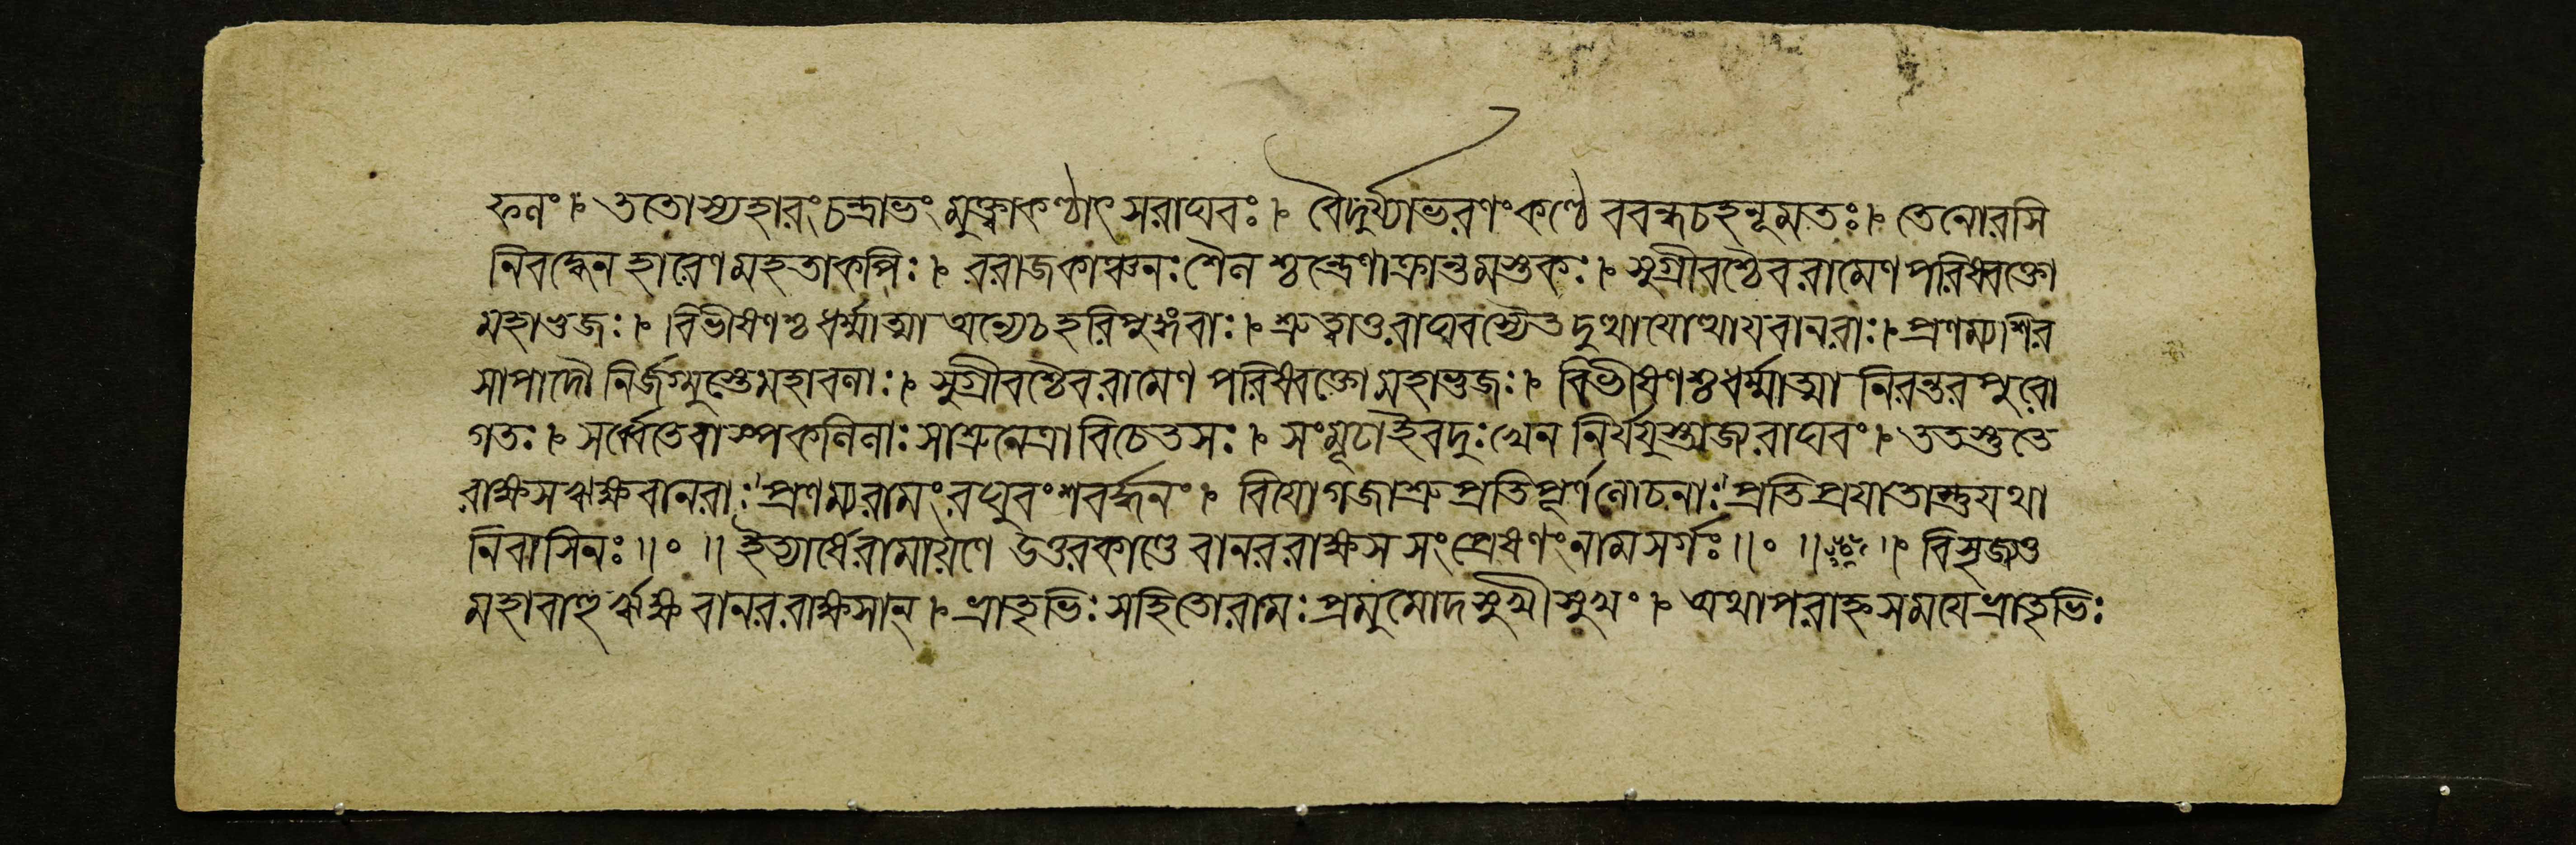 ফলং । ততোস্যহারং চন্দ্রাভং মুক্ত্বাকণ্ঠাৎ সরাঘবঃ । বৈদূর্য্যাভরণং কণ্ঠে ববন্ধচহনূমতঃ । তেনোরসি
নিবদ্ধেন হারেণ মহতাকপিঃ । ররাজকাঞ্চনঃ শৈল শ্চন্দ্রেণাক্রান্তমস্তকঃ । সুগ্রীবশ্চৈব রামেণ পরিষ্বক্তো
মহাভুজঃ । বিভীষণশ্চ ধর্ম্মাত্মা অন্যেচ হরিপুঙ্গবাঃ । শ্রুত্বাতুরাঘবস্যৈতদুত্থায়োত্থায়বানরাঃ । প্রণম্যশির
সাপাদৌ নির্জগ্মুস্তেমহাবলাঃ । সুগ্রীবশ্চৈব রামেণ পরিষ্বক্তো মহাভুজঃ । বিভীষণশ্চধর্ম্মাত্মা নিরন্তর পুরো
গতঃ । সর্ব্বেতেবাস্পকলিলাঃ সাশ্রুনেত্রা বিচেতসঃ । সংমূঢাইবদুঃখেন নির্যযুস্ত্যজ্যরাঘবং । ততস্তুতে
রাক্ষসঋক্ষবানরাঃ প্রণম্যরামং রঘুবংশবর্দ্ধনং । বিয়োগজাশ্রুপ্রতিপূর্ণলোচনাঃ প্রতিপ্রযাতাস্তুযথা
নিবাসিনঃ ॥০॥ ইত্যার্ষেরামায়ণে উত্তরকাণ্ডে বানররাক্ষস সংপ্রেষণংনামসর্গঃ ॥০॥ ॥ বিসৃজ্যতু
মহাবাহুর্ঋক্ষ বানররাক্ষসান্ । ভ্রাতৃভিঃ সহিতোরামঃ প্রমুমোদসুখীসুখং । অথাপরাহ্ণসময়েভ্রাতৃভিঃ